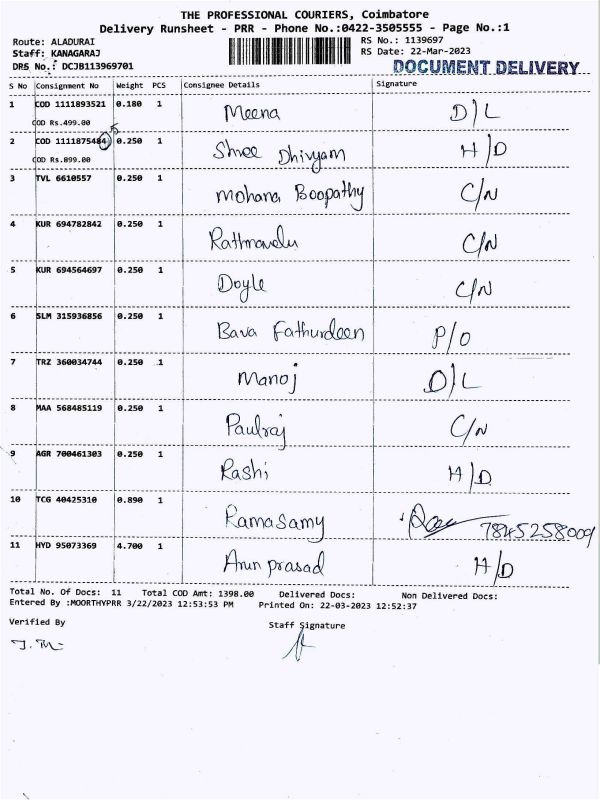 THE PROFESSIONAL COURIERS, Coimbatore
Delivery Runsheet - PRR - Phone No.:0422-3505555 - Page No.:1
Route: ALADURAI RS No.: 1139697
Staff: KANAGARAJ RS Date: 22-Mar-2023
DRS No.: DCJB113969701 DOCUMENT DELIVERY
S No Consignment No Weight PCS Consignee Details Signature
1 COD 1111893521 0.180 1 Meena D/L
COD Rs.499.00
2 COD 1111875484 5 0.250 1 Shree Dhivyam H/D
COD Rs.899.00
3 TVL 6610557 0.250 1 Mohana Boopathy C/N
4 KUR 694782842 0.250 1 Rathmavelu C/N
5 KUR 694564697 0.250 1 Doyle C/N
6 SLM 315936856 0.250 1 Bava Fathurdeen P/O
7 TRZ 360034744 0.250 1 Manoj D/L
8 MAA 568485119 0.250 1 Paulraj C/N
9 AGR 700461303 0.250 1 Rashi H/D
10 TCG 40425310 0.890 1 Ramasamy 7845258009
11 HYD 95073369 4.700 1 Arun prasad H/D
Total No. Of Docs: 11 Total COD Amt: 1398.00 Delivered Docs: Non Delivered Docs:
Entered By :MOORTHYPRR 3/22/2023 12:53:53 PM Printed On: 22-03-2023 12:52:37
Verified By Staff Signature